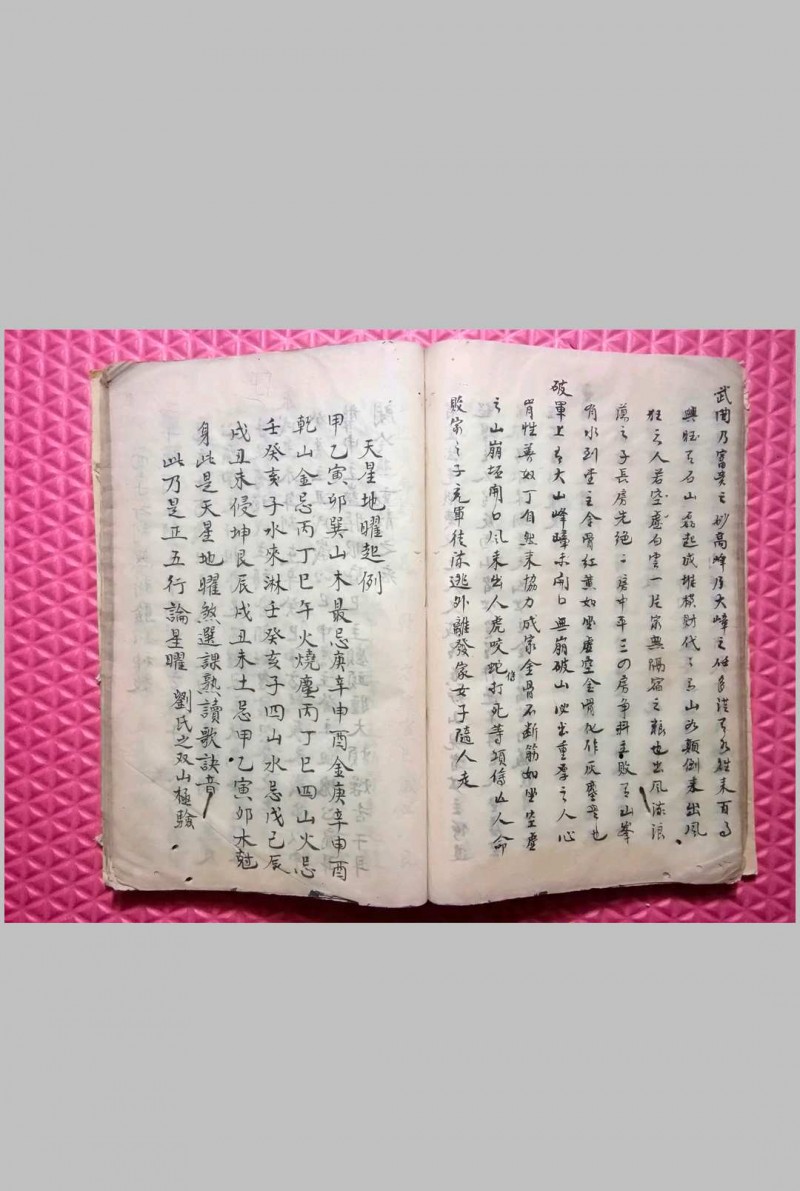 武曲乃富貴之妙高峰乃大峰之任
興旺若石山磊起成堆積財代々若山水顛倒來出風
狂之人若空虛白雲一片家無隔宿之粮也出風流浪
蕩之子長房先絕二房中平三四房爭料主敗若山峯
有水到堂主金骨紅黃如坐虛空金骨化作灰塵无也
破軍上有大山峰嶂示開口無崩破山必出重厚之人心
肯性善奴丁自然來協力成家金骨不斷筋如坐空虛
之山崩班開口風來出人虎咬蛇傷打死等項傷亡人命
敗家之子充軍徒流逃外離發家女子隨人走
天星地曜起例
甲乙寅卯巽山木最忌庚辛申酉金庚辛申酉
乾山金忌丙丁巳午火燒塵丙丁巳四山火忌
壬癸亥子水來淋壬癸亥子四山水忌戊己辰
戌丑未侵坤艮辰戌丑未土忌甲乙寅卯木尅
身此是天星地曜煞選課熟讀歌訣音
此乃是正五行論星曜
劉氏之双山極驗